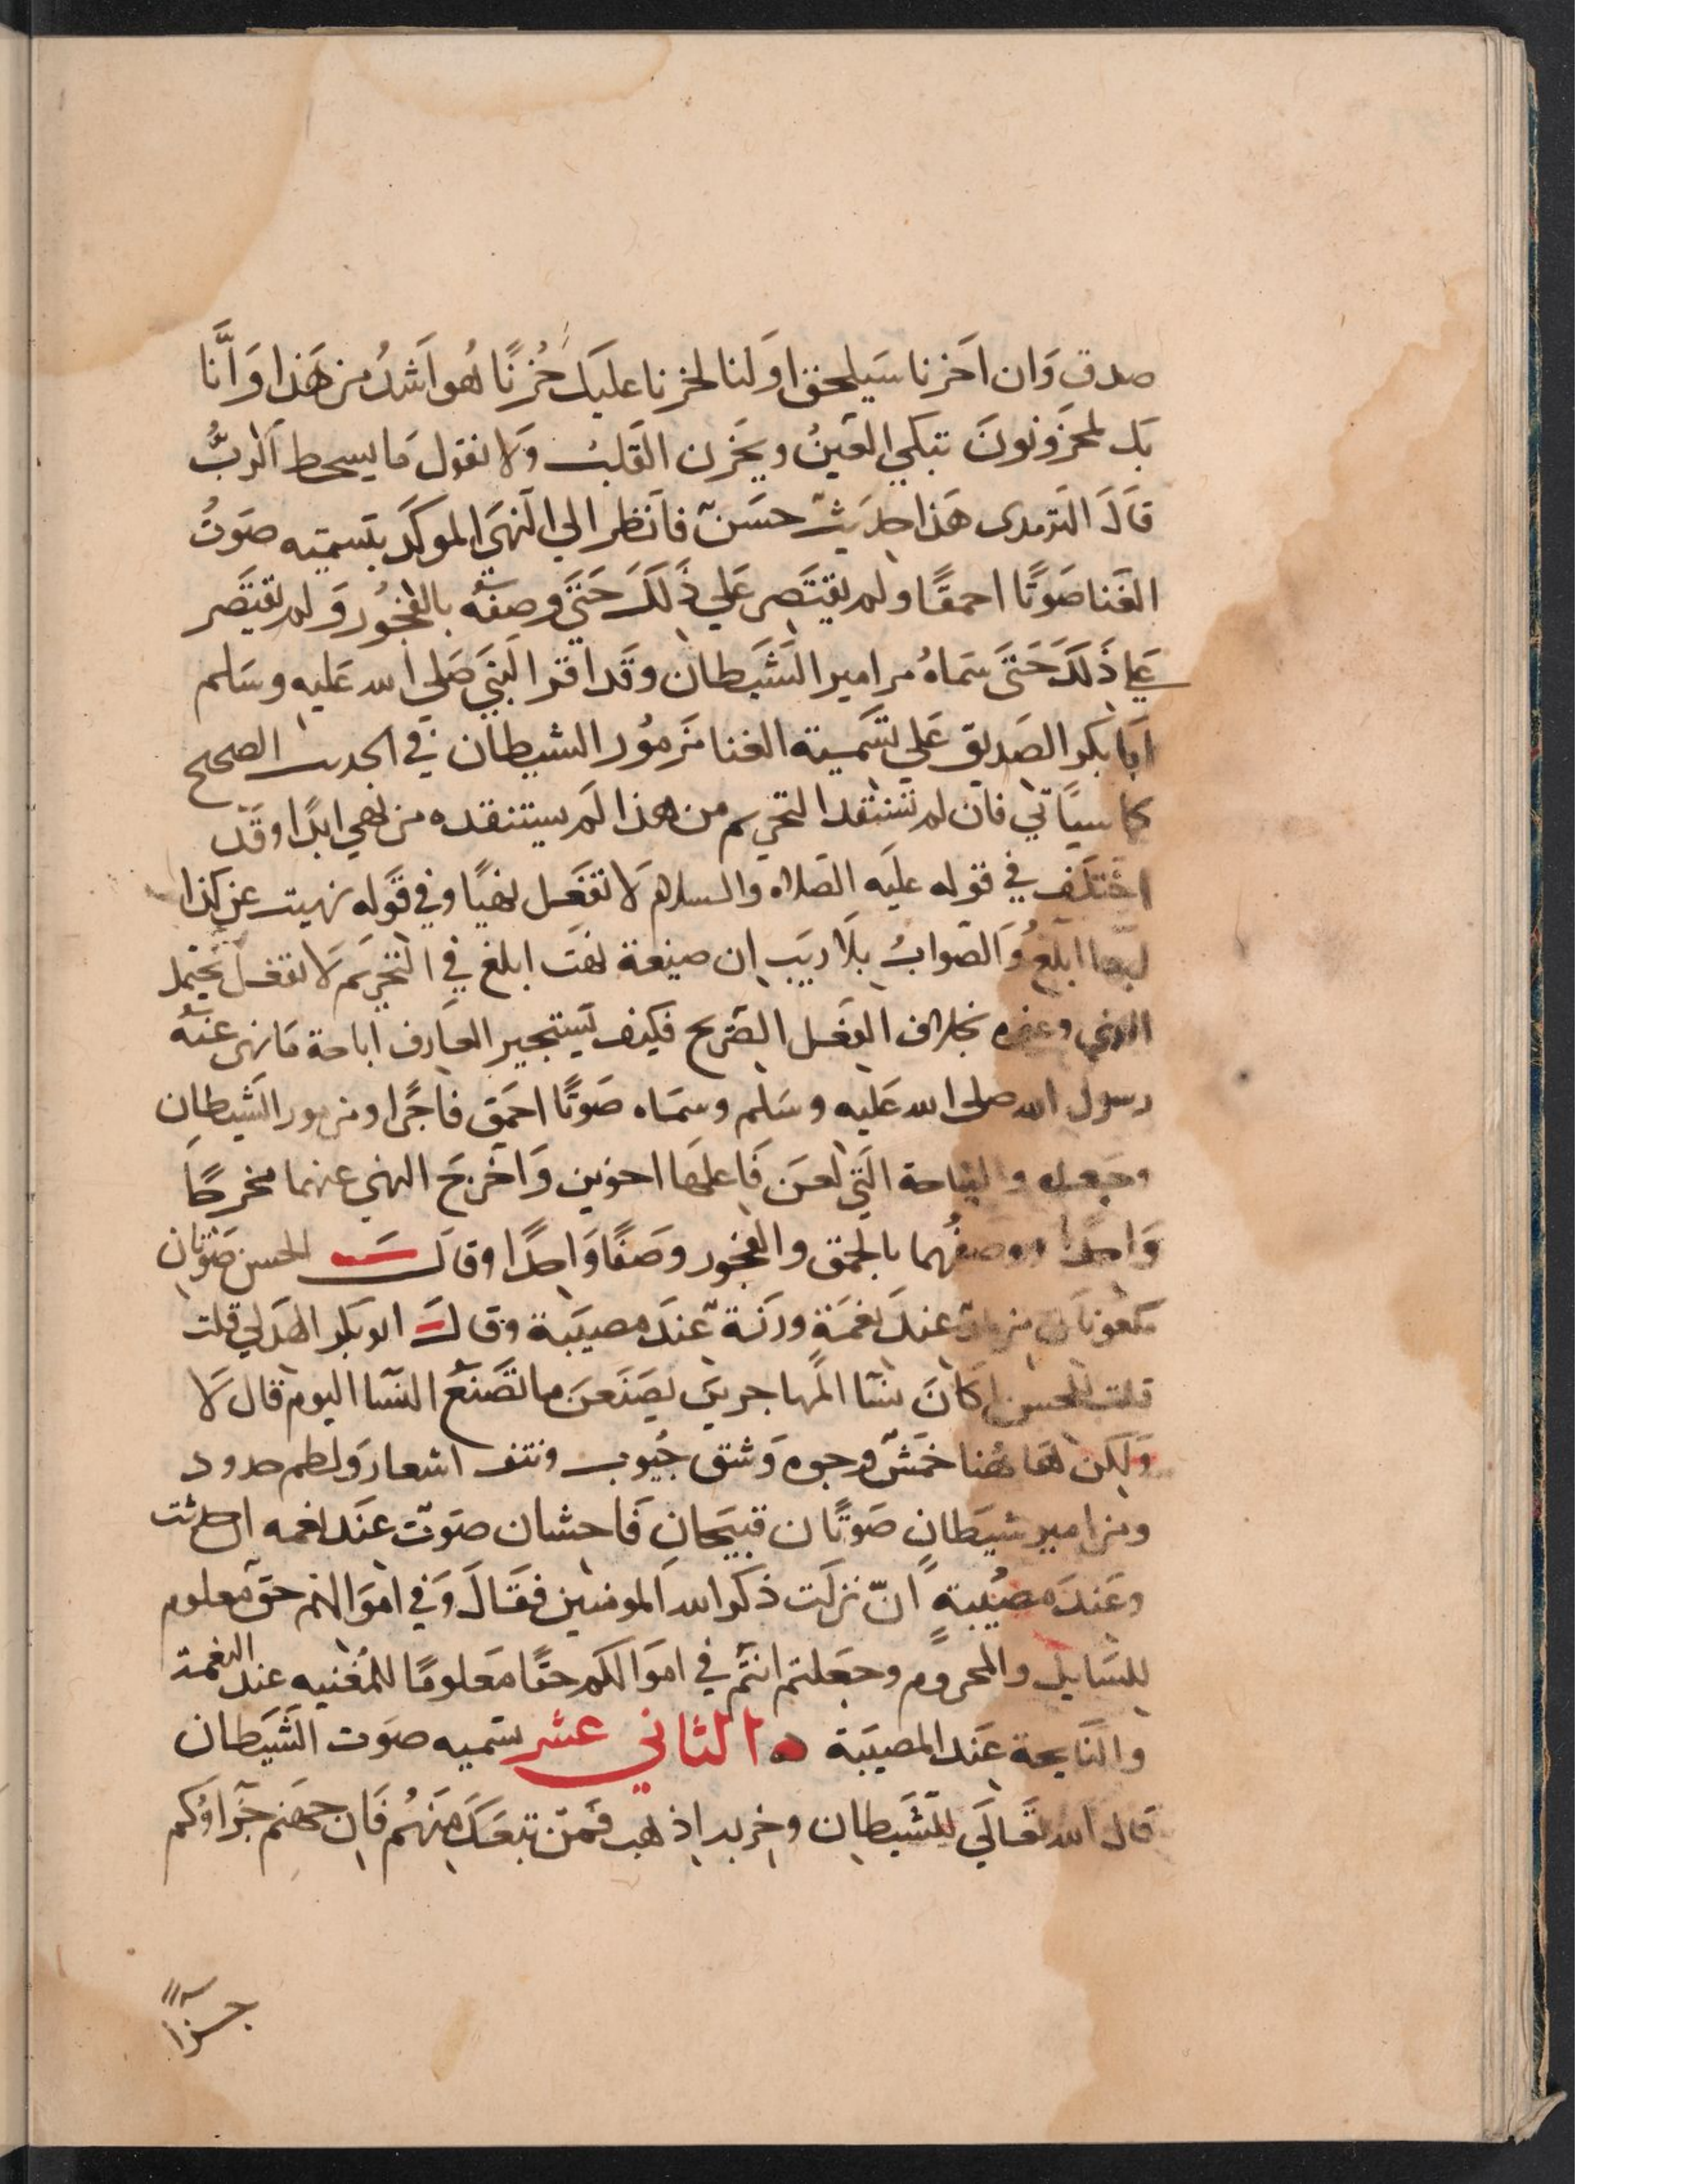 صدق وَان اَخرنا سَيلحق اوَلنا لحزنا عليَك حُزنًا هُو اَشدُ من هَذا وَاَنَّا
بَك لمحزَونونَ تبكي العَينُ ويحَزن القَلبُ وَلا نقول مَا يسحط اَلربُّ
قاَلَ الترمدى هَذا حدَيثٌ حسَنٌ فانَظر الي النهَي الموكَد بتَسميَته صَوتُ
الغَنا صَوتًا احمقًا ولم يقتَصِر عَلي ذَلَكَ حَتَيَ وصفَه بالفُجوُر وَلم يقتَصَر
عَلي ذَلَكَ حَتَيَ سَماهُ مزامير الشَيَطان وقَد اقر النَبيَ صَلي الله عَليه وسَلم
اَبَا بَكر الصَديق عَلي تسَميتة الغنا مَزموُر الشيطان في الحديث الصحيح
كما سيَاتي فان لم تسَتفد التحريم من هذا لَم يستنفده من نهي ابدًا وقَد
اختلَف في قوله علَيه الصَلاه والسلام لَا تفعَل نهيًا وفي قَوله نهيت عن كذا
ايهما ابلَغُ وَالصَوابُ بلَا ريَب ان صيغة نهَت ابلغ في التحَريَم لاَ تفعَل يحَتمل
النهي وغيره بخلاف الفعَل الصَريح فكيَف يَستجيز العَارف اباحة مَا نهى عَنهُ
رسول الله صلى الله عَليه وسَلم وسمَاه صَوتًا احمَق فاجًرا ومزمور الشَيطان
وجَعله والنياحة التَي لعَن فَاعلهَا اخوين وَاخرجَ النهي عنهما مخرجًا
وَاحدًا ووصفُهما بالحمق والفُجور وصَفًا وَاحدًا وقالَ الحسن صَوتان
مَلعونَان مزمار عندَ نغمَة ورَنَة عنَد مصيَبة وقال ابو بَكر الهدَلي قلت
قلت للحسن اكَانَ نسَا المَهاجرينَ يصَنَعنَ ما تَصَنعَ النسَا اليوم قال لَا
وَلَكن هَا هُنا خمَشٌ وجوه وَشق جُيوب ونتف اشعار وَلطم حدود
ومزامير شيَطان صَوتًان قبيَحانِ فَاحشان صَوتٌ عنَد نغمه ان حدثت
وعَندَ مصُيبةٍ انَ نزلَت ذكر الله المومنين فقَالَ وَفي اموَالهم حقٌ معلوم
للسَايل والمحروُم وجَعَلتم انتُم في اموَالكم حقًا مَعلومًا للمُغنيه عند النغمة
والنَايحة عنَد المصيبَة ۞ الثاني عشر تسَميه صَوت الشَيَطان
قال الله تَعالَي للشَيطان وحزبه اذهب فَمنَ تبعَكَ مِنَهُم فَان جهَنم جَزاوَكم
جزآءً